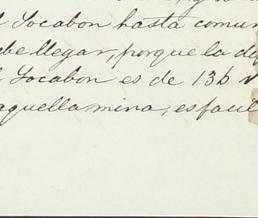 l Socabon hasta comun
be llegar, porque la di
l Socabon es de 136 v
aquella mina, es facil